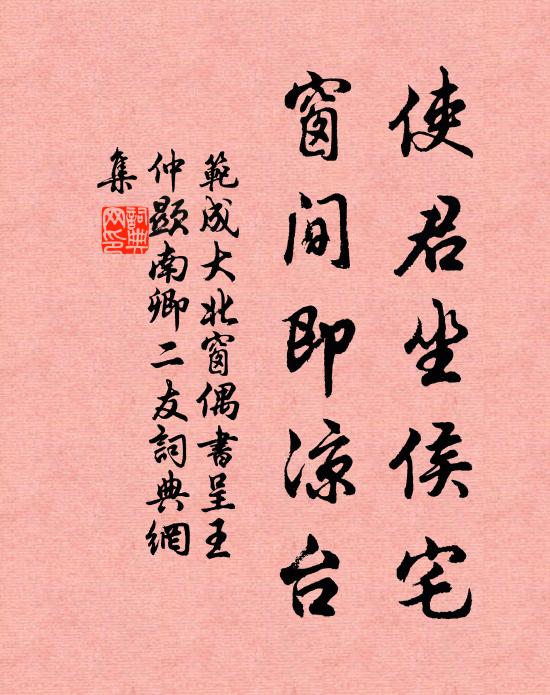 使君坐侯宅
窗間即凉台
範成大北窗偶書呈王
仲顯南卿二友詞典網
集
詞典
网印